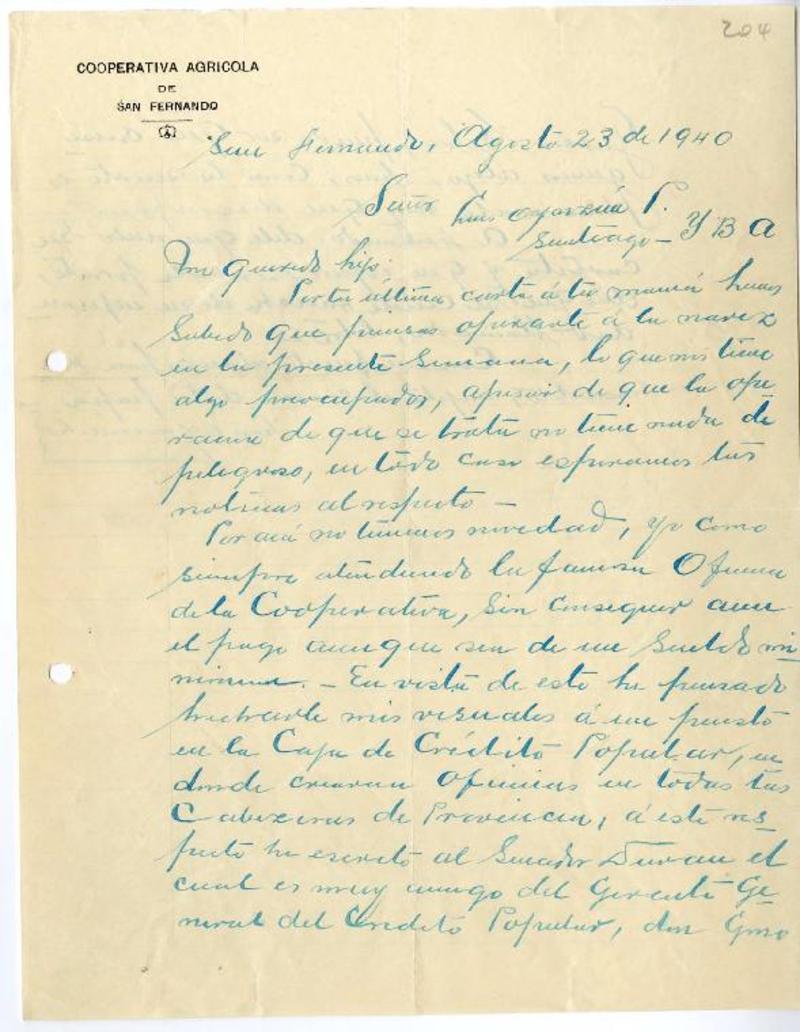 204
COOPERATIVA AGRICOLA
DE
SAN FERNANDO
San Fernando, Agosto 23 de 1940
Señor Luis Oyarzún P.
Santiago -
Mi querido hijo:
Por tu última carta á tu mamá hemos
sabido que piensas operarte á la nariz
en la presente semana, lo que nos tiene
algo preocupados, apesar de que la ope
racion de que se trata no tiene nada de
peligroso, en todo caso esperamos tus
noticias al respecto -
Por acá no tenemos novedad, yo como
siempre atendiendo la famosa Oficina
de la Cooperativa, sin conseguir aun
el pago aunque sea de un sueldo mi
nimum. - En vista de esto he pensado
mis visuales á un puesto
en la Caja de Crédito Popular, en
donde crearan Oficinas en todas las
Cabezeras de Provincia, á este res-
pecto he escrito al Senador Duran el
cual es muy amigo del Gerente Ge-
neral del Credito Popular, don